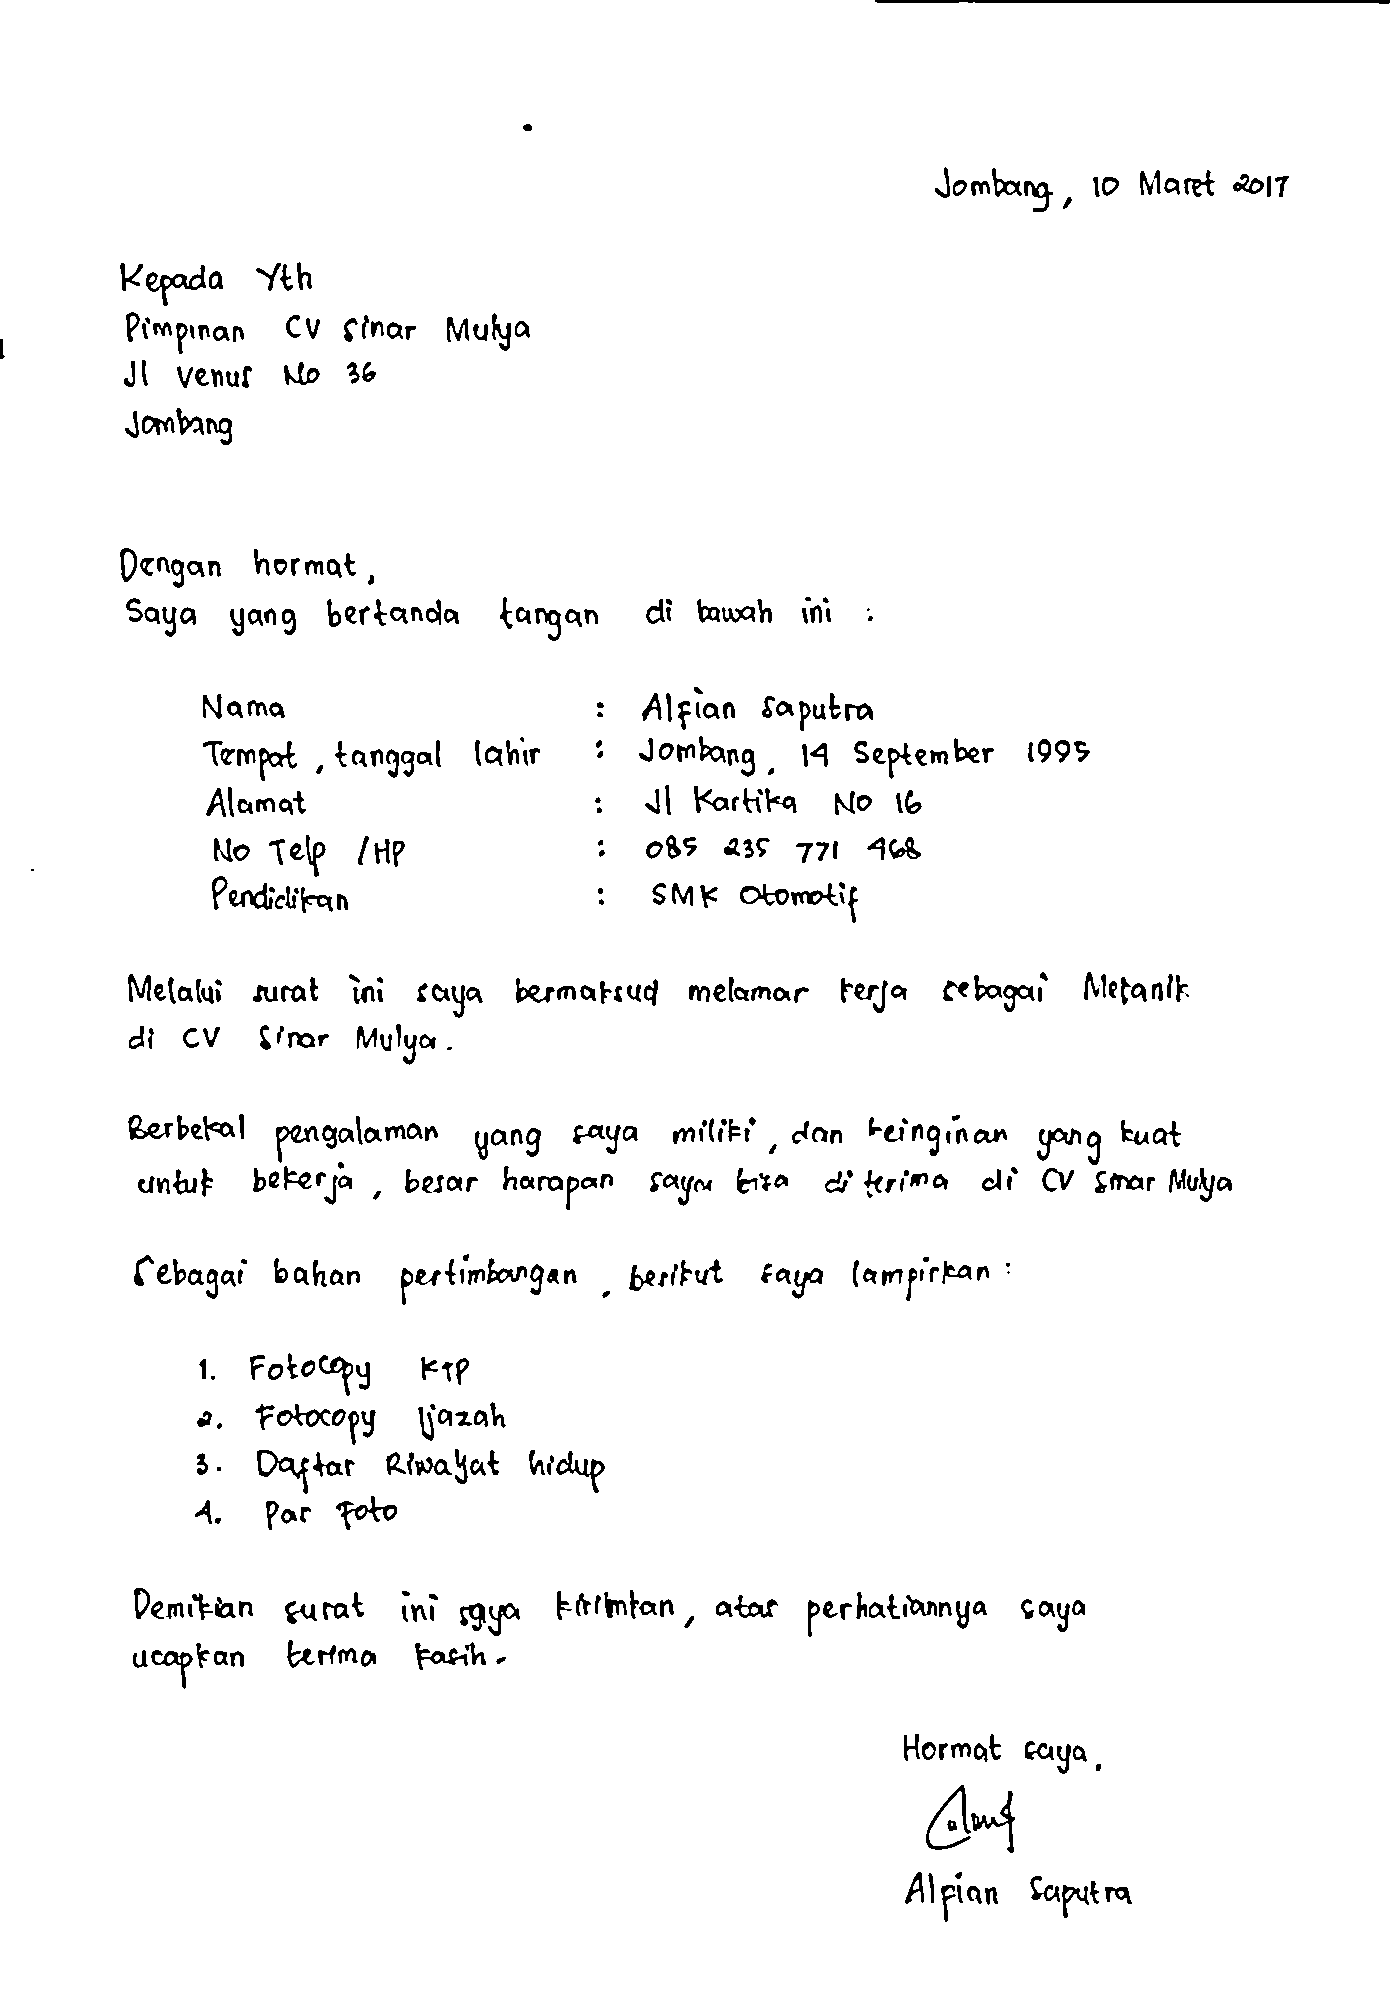 Jombang, 10 Maret 2017
Kepada Yth
Pimpinan CV Sinar Mulya
Jl Venus No 36
Jombang
Dengan hormat,
Saya yang bertanda tangan di bawah ini :
Nama : Alfian Saputra
Tempat, tanggal lahir : Jombang, 14 September 1995
Alamat : Jl Kartika No 16
No Telp / HP : 085 235 771 468
Pendidikan : SMK Otomotif
Melalui surat ini saya bermaksud melamar kerja sebagai Mekanik
di CV Sinar Mulya.
Berbekal pengalaman yang saya miliki, dan keinginan yang kuat
untuk bekerja, besar harapan saya bisa di terima di CV Sinar Mulya
Sebagai bahan pertimbangan, berikut saya lampirkan :
1. Fotocopy KTP
2. Fotocopy Ijazah
3. Daftar Riwayat hidup
4. Pas Foto
Demikian surat ini saya kirimkan, atas perhatiannya saya
ucapkan terima kasih.
Hormat saya.
Alfian Saputra